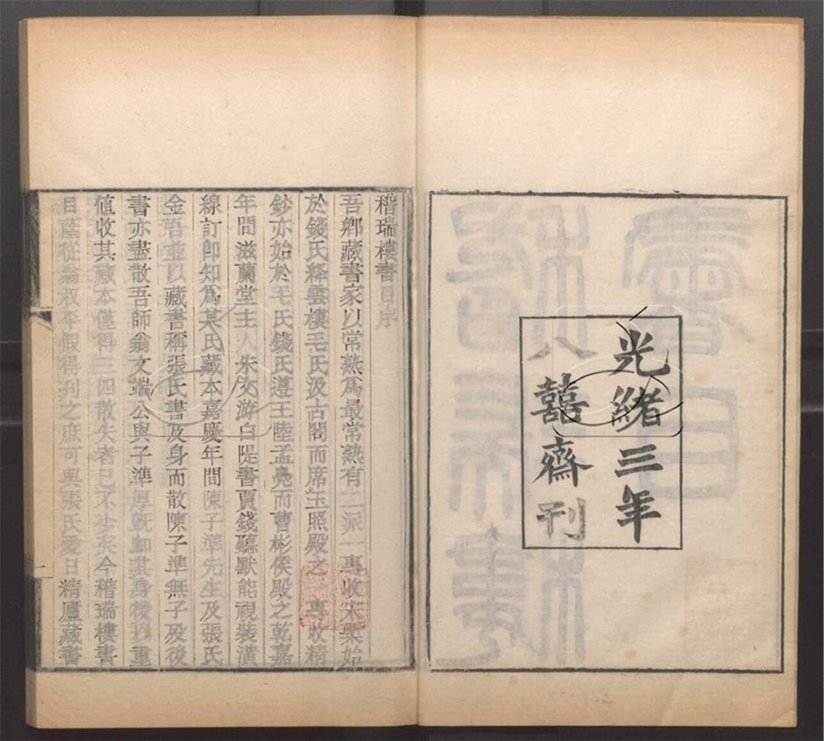 光緒三年
八囍齋刊
稽瑞樓書目序
吾鄉藏書家以常熟爲最常熟有二派一專收宋槧始
於錢氏絳雲樓毛氏汲古閣而席玉照殿之一專收精
鈔亦始於毛氏錢氏遵王陸孟鳧而曹彬侯殿之乾嘉
年間滋蘭堂主人朱文游白隄書賈錢聽默能視裝潢
線訂卽知爲某氏藏本嘉慶年間陳子準先生及張氏
金吾並以藏書稱張氏書及身而散陳子準無子歿後
書亦盡散吾師翁文端公與子準厚旣卹其身後以重
値收其藏本僅得三四散失者已不少矣今稽瑞樓書
目蔭從翁叔平假得刊之庶可與張氏愛日精廬藏書